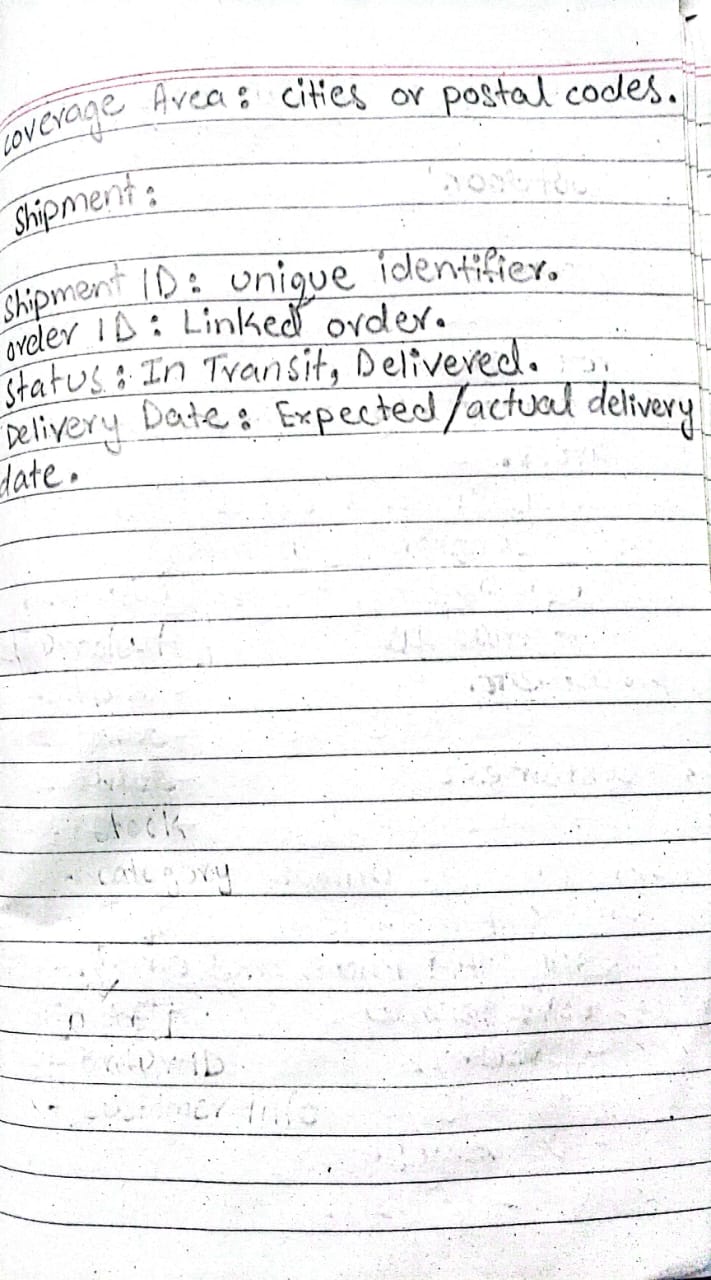 coverage Area: cities or postal codes.
Shipment:
Shipment ID: unique identifier.
order ID: Linked order.
Status: In Transit, Delivered.
Delivery Date: Expected/actual delivery
date.
stock
category